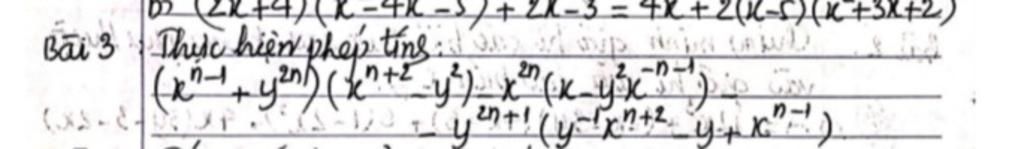 b) (2x+4)(x²-4x-5) + 2x-3 = 4x + 2(x-5)(x²+3x+2)
Bài 3 : Thực hiện phép tính:
(xⁿ⁻¹ + y²ⁿ)(xⁿ⁺² - y²) - x²ⁿ(x - y²x⁻ⁿ⁻¹) -
- y²ⁿ⁺¹(y⁻¹xⁿ⁺² - y + xⁿ⁻¹)